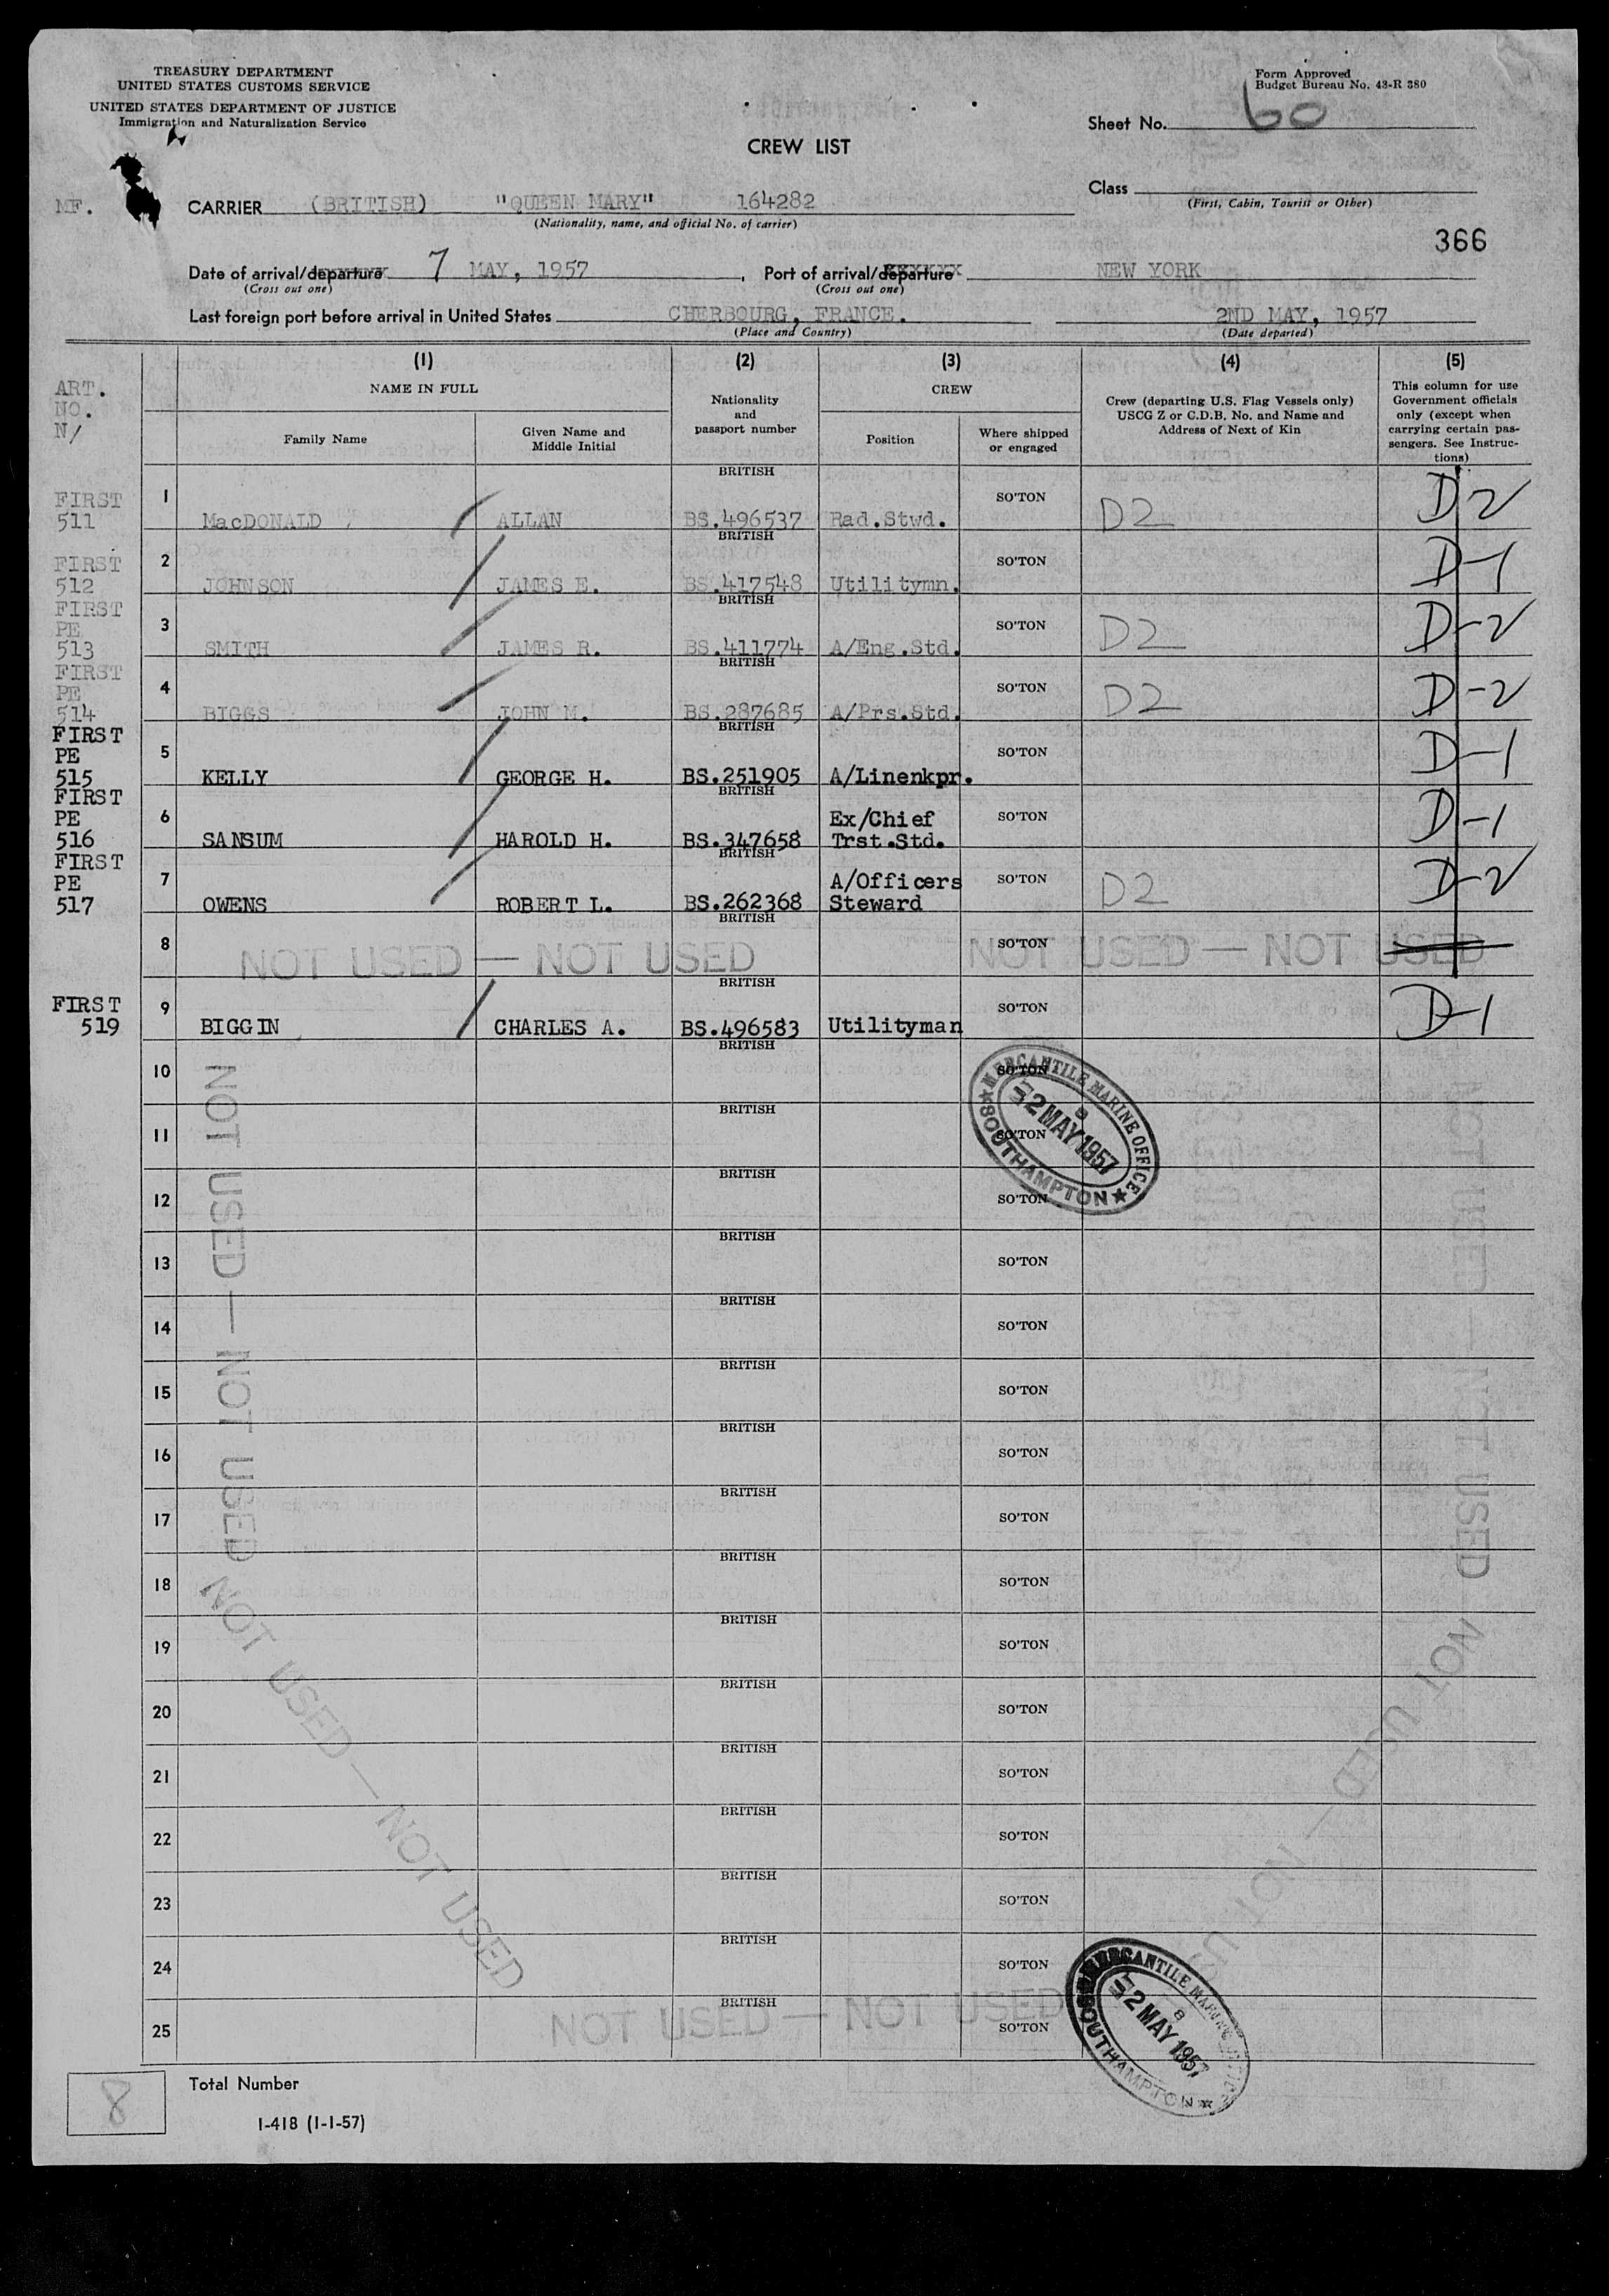 TREASURY DEPARTMENT
UNITED STATES CUSTOMS SERVICE
UNITED STATES DEPARTMENT OF JUSTICE
Immigration and Naturalization Service
Form Approved
Budget Bureau No. 43-R 380
Sheet No. 60
CREW LIST
Class
(First, Cabin, Tourist or Other)
MF.
CARRIER (BRITISH) "QUEEN MARY" 164282
(Nationality, name, and official No. of carrier)
366
Date of arrival/departure 7 MAY, 1957, Port of arrival/departure NEW YORK
(Cross out one) (Cross out one)
Last foreign port before arrival in United States CHERBOURG, FRANCE. 2ND MAY, 1957
(Place and Country) (Date departed)
ART.
NO.
N/
(1) (2) (3) (4) (5)
NAME IN FULL
Family Name
Given Name and
Middle Initial
Nationality
and
passport number
CREW
Position
Where shipped
or engaged
Crew (departing U.S. Flag Vessels only)
USCG Z or C.D.B. No. and Name and
Address of Next of Kin
This column for use
Government officials
only (except when
carrying certain pas-
sengers. See Instruc-
tions)
BRITISH
FIRST 511 1 MacDONALD ALLAN BS.496537 Rad.Stwd. SO'TON D2 D2
BRITISH
FIRST 512 2 JOHNSON JAMES E. BS.417548 Utilitymn. SO'TON D-1
BRITISH
FIRST PE 513 3 SMITH JAMES R. BS.411774 A/Eng.Std. SO'TON D2 D-2
BRITISH
FIRST PE 514 4 BIGGS JOHN M. BS.287685 A/Prs.Std. SO'TON D2 D-2
BRITISH
FIRST PE 515 5 KELLY GEORGE H. BS.251905 A/Linenkpr. SO'TON D-1
BRITISH
FIRST PE 516 6 SANSUM HAROLD H. BS.347658 Ex/Chief Trst.Std. SO'TON D-1
BRITISH
FIRST PE 517 7 OWENS ROBERT L. BS.262368 A/Officers Steward SO'TON D2 D-2
BRITISH
8 NOT USED — NOT USED SO'TON NOT USED — NOT USED
BRITISH
FIRST 519 9 BIGGIN CHARLES A. BS.496583 Utilityman SO'TON D-1
BRITISH
10 SO'TON
BRITISH
11 SO'TON
BRITISH
12 SO'TON
BRITISH
13 SO'TON
BRITISH
14 SO'TON
BRITISH
15 SO'TON
BRITISH
16 SO'TON
BRITISH
17 SO'TON
BRITISH
18 SO'TON
BRITISH
19 SO'TON
BRITISH
20 SO'TON
BRITISH
21 SO'TON
BRITISH
22 SO'TON
BRITISH
23 SO'TON
BRITISH
24 SO'TON
BRITISH
25 SO'TON
NOT USED — NOT USED
NOT USED — NOT USED
NOT USED — NOT USED
NOT USED — NOT USED
NOT USED — NOT USED
MERCANTILE MARINE OFFICE
8
2 MAY 1957
SOUTHAMPTON
MERCANTILE MARINE OFFICE
8
2 MAY 1957
SOUTHAMPTON
8
Total Number
I-418 (1-1-57)